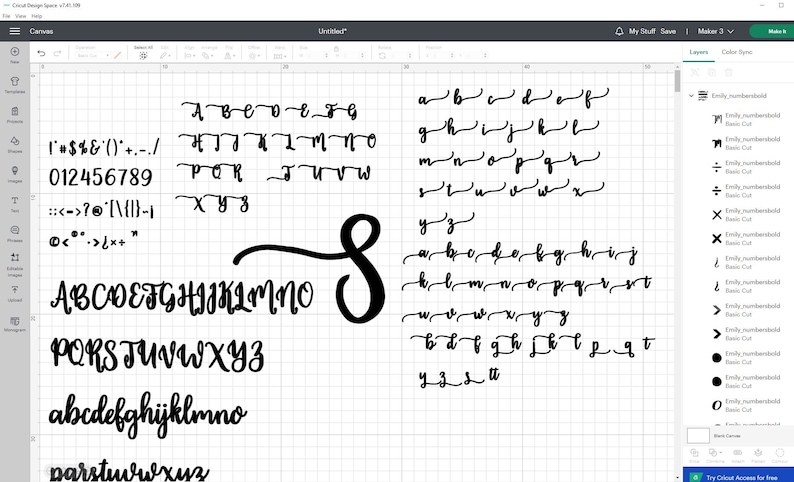 Cricut Design Space v7.41.109
File View Help
Canvas
Untitled*
My Stuff Save | Maker 3
Make It
New
Select All
Edit
Align
Arrange
Flip
Offset
Size
Rotate
Position
Layers Color Sync
0 10 20 30 40 50
10
20
Templates
Projects
Shapes
Images
Text
Phrases
Editable
Images
Upload
Monogram
A B C D E F G
H I J K L M N O
P Q R S T U V W
X Y Z
!"#$%&'()*+,-./
0123456789
:;<=>?@^[\{|}~¡
S
ABCDEFGHIJKLMNO
PQRSTUVWXYZ
abcdefghijklmno
pqrstuvwxyz
a b c d e f
g h i j k l
m n o p q r
s t u v w x
y z
a b c d e f g h i j
k l m n o p q r s t
u v w x y z
b d f g h j k l p q t
y z s tt
Emily_numbersbold
Emily_numbersbold
Basic Cut
Emily_numbersbold
Basic Cut
Emily_numbersbold
Basic Cut
Emily_numbersbold
Basic Cut
Emily_numbersbold
Basic Cut
Emily_numbersbold
Basic Cut
Emily_numbersbold
Basic Cut
Emily_numbersbold
Basic Cut
Emily_numbersbold
Basic Cut
Emily_numbersbold
Basic Cut
Emily_numbersbold
Basic Cut
Emily_numbersbold
Basic Cut
Emily_numbersbold
Basic Cut
Emily_numbersbold
Blank Canvas
Slice Combine Weld Flatten Contour
Try Cricut Access for free